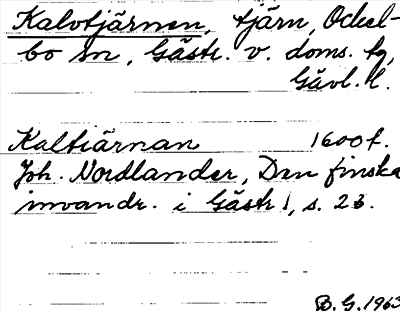 Kalvtjärnen, tjärn, Ockel-
bo sn, Gästr. v. doms. tg,
Gävl. l.
Kaltiärnan 1600 t.
Joh. Nordlander, Den finska
invandr. i Gästr!, s. 23.
B. G. 1963